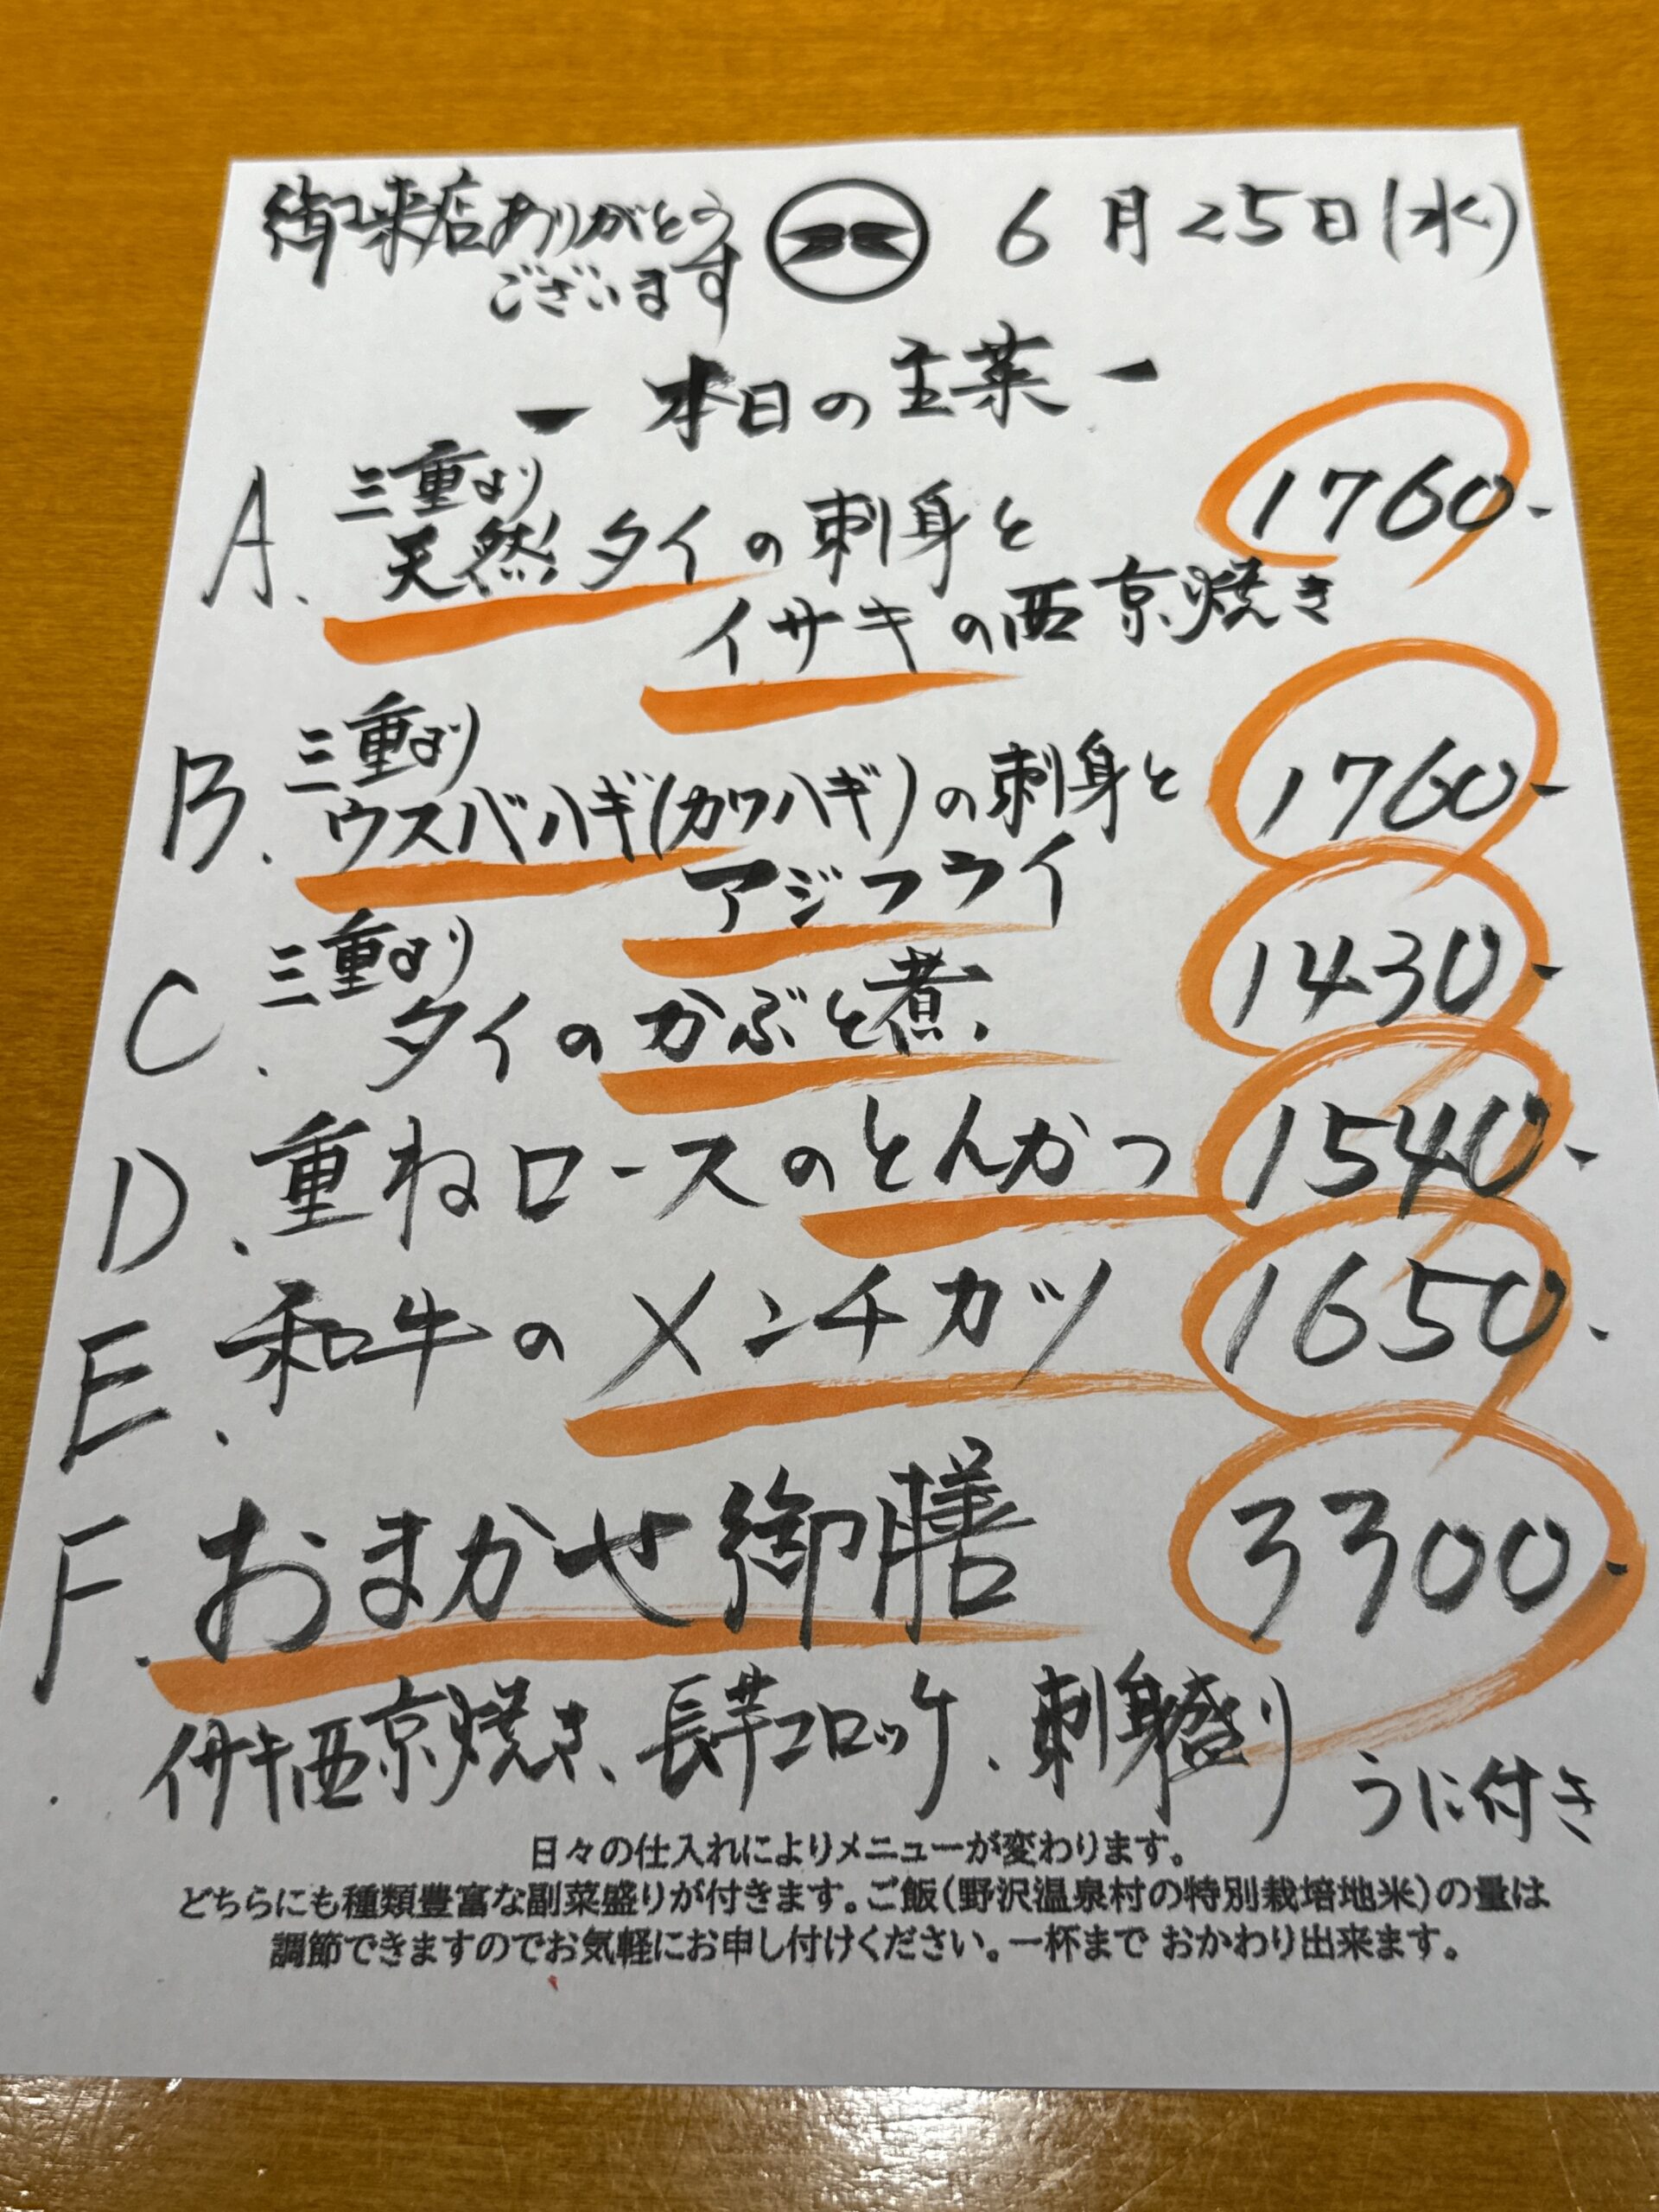 御来店ありがとう
ございます
6月25日(水)
ー 本日の主菜 ー
A. 三重より
天然タイの刺身と 1760-
イサキの西京焼き
B. 三重より
ウスバハギ(カワハギ)の刺身と 1760-
アジフライ
C. 三重より
タイのかぶと煮. 1430-
D. 重ねロースのとんかつ 1540-
E. 和牛のメンチカツ 1650-
F. おまかせ御膳 3300-
イサキ西京焼き、長芋コロッケ、刺身盛り
うに付き
日々の仕入れによりメニューが変わります。
どちらにも種類豊富な副菜盛りが付きます。ご飯(野沢温泉村の特別栽培地米)の量は
調節できますのでお気軽にお申し付けください。一杯まで おかわり出来ます。